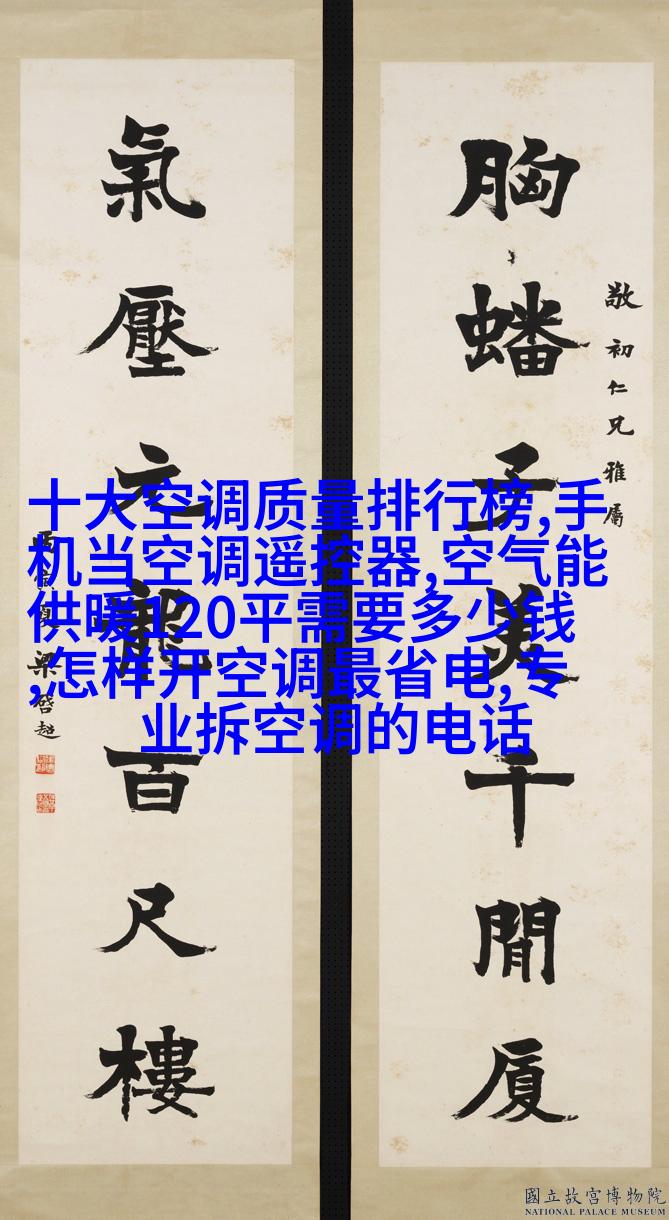 胸蟠子美千間厦
敬初仁兄雅屬
氣壓元龍百尺樓
丙寅夏梁啓超
十大空调质量排行榜,手
机当空调遥控器,空气能
供暖120平需要多少钱
,怎样开空调最省电,专
业拆空调的电话
國立故宮博物院
NATIONAL PALACE MUSEUM